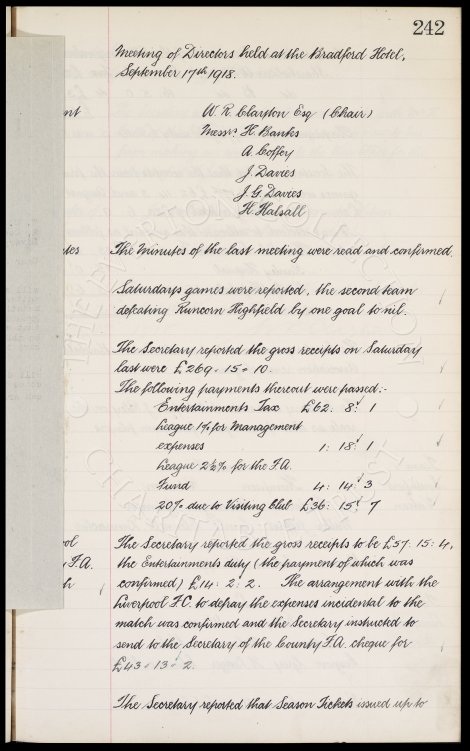 242
Meeting of Directors held at the Bradford Hotel,
September 17th 1918.
nt
W. R. Clayton Esq (Chair)
Messrs. H. Banks
A. Coffey
J. Davies
J. G. Davies
H. Halsall
tes
The Minutes of the last meeting were read and confirmed.
Saturdays games were reported, the second team
defeating Runcorn Highfield by one goal to nil.
The Secretary reported the gross receipts on Saturday
last were £269 . 15 . 10.
The following payments thereout were passed:-
Entertainments Tax £62. 8. 1
League 1% for Management
expenses 1: 18. 1
League 2½% for the F.A.
Fund 4: 14. 3
20% due to Visiting Club £36: 15. 7
ool
The Secretary reported the gross receipts to be £57: 15: 4,
y F.A.
the Entertainments duty (the payment of which was
h
confirmed) £14: 2: 2. The arrangement with the
Liverpool F.C. to defray the expenses incidental to the
match was confirmed and the Secretary instructed to
send to the Secretary of the County F.A. cheque for
£43 . 13 . 2
The Secretary reported that Season Tickets issued up to